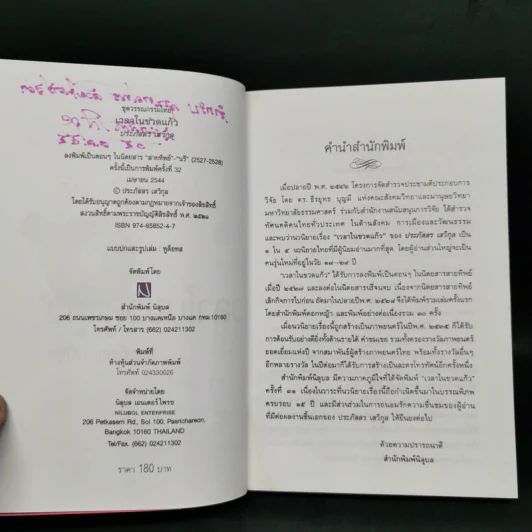 ชุดวรรณกรรมไทย
เวลาในขวดแก้ว
ประภัสสร เสวิกุล
ลงพิมพ์เป็นตอนๆ ในนิตยสาร "สายทิพย์"-"บุรี" (2527-2528)
ครั้งนี้เป็นการพิมพ์ครั้งที่ 32
เมษายน 2544
© ประภัสสร เสวิกุล
ได้รับอนุญาตถูกต้องตามกฎหมายจากเจ้าของลิขสิทธิ์
สงวนลิขสิทธิ์ตามพระราชบัญญัติลิขสิทธิ์ พ.ศ. ๒๕๒๑
ISBN 974-65852-4-7
แบบปกและรูปเล่ม :
จัดพิมพ์โดย
สำนักพิมพ์ นิลุบล
206 ถนนเพชรเกษม ซอย 100 บางแคเหนือ บางแค กทม.10160
โทรศัพท์ / โทรสาร (662) 024211302
พิมพ์ที่
ห้างหุ้นส่วนจำกัดภาพพิมพ์
โทรศัพท์ 024330026
จัดจำหน่ายโดย
นิลุบล เอนเตอร์ไพรซ
NILUBOL ENTERPRISE
206 Petkasem Rd., Soi 100, Pasricharoen,
Bangkok 10160 THAILAND
Tel/Fax. (662) 024211302
ราคา 180 บาท
คำนำสำนักพิมพ์
เมื่อปลายปี พ.ศ. ๒๕๔๒ โครงการจัดสำรวจประชามติประกอบการ
วิจัย โดย ดร. ธีรยุทธ บุญมี แห่งคณะสังคมวิทยาและมานุษยวิทยา
มหาวิทยาลัยธรรมศาสตร์ ร่วมกับสำนักงานสนับสนุนการวิจัย ได้สำรวจ
ทัศนคติคนไทยทั่วประเทศ ในด้านสังคม การเมืองและวัฒนธรรม
และพบว่านวนิยายเรื่อง "เวลาในขวดแก้ว" ของ ประภัสสร เสวิกุล เป็น
๑ ใน ๕ นวนิยายไทยที่มีผู้นิยมอ่านมากที่สุด โดยผู้อ่านส่วนใหญ่จะเป็น
คนรุ่นใหม่ที่อยู่ในวัย ๑๗-๒๙ ปี
"เวลาในขวดแก้ว" ได้รับการลงพิมพ์เป็นตอนๆ ในนิตยสารสายทิพย์
เมื่อปี ๒๕๒๗ และลงต่อในนิตยสารบุรีจนจบ เนื่องจากนิตยสารสายทิพย์
เลิกกิจการไปก่อน ต่อมาในปลายปีพ.ศ. ๒๕๒๘ จึงได้พิมพ์รวมเล่มครั้งแรก
โดยสำนักพิมพ์ดอกหญ้า และพิมพ์อย่างต่อเนื่องรวม ๓๐ ครั้ง
เมื่อนวนิยายเรื่องนี้ถูกสร้างเป็นภาพยนตร์ในปีพ.ศ. ๒๕๓๕ ก็ได้รับ
การต้อนรับอย่างดียิ่งทั้งด้านรายได้ คำชมเชย รวมทั้งครองรางวัลภาพยนตร์
ยอดเยี่ยมแห่งปี จากสมาพันธ์ผู้สร้างภาพยนตร์ไทย พร้อมทั้งรางวัลอื่นๆ
อีกหลายรางวัล ในปีต่อมาก็ได้รับการสร้างเป็นละครโทรทัศน์อีกครั้งหนึ่ง
สำนักพิมพ์นิลุบล มีความภาคภูมิใจที่ได้จัดพิมพ์ "เวลาในขวดแก้ว"
ครั้งที่ ๓๑ เนื่องในวาระที่นวนิยายเรื่องนี้ถือกำเนิดขึ้นมาในบรรณพิภพ
ครบรอบ ๑๕ ปี และมีส่วนร่วมในการถนอมรักความชื่นชมของผู้อ่าน
ที่มีต่อผลงานชิ้นเอกของ ประภัสสร เสวิกุล ให้ยืนยงต่อไป
ด้วยความปรารถนาดี
สำนักพิมพ์นิลุบล